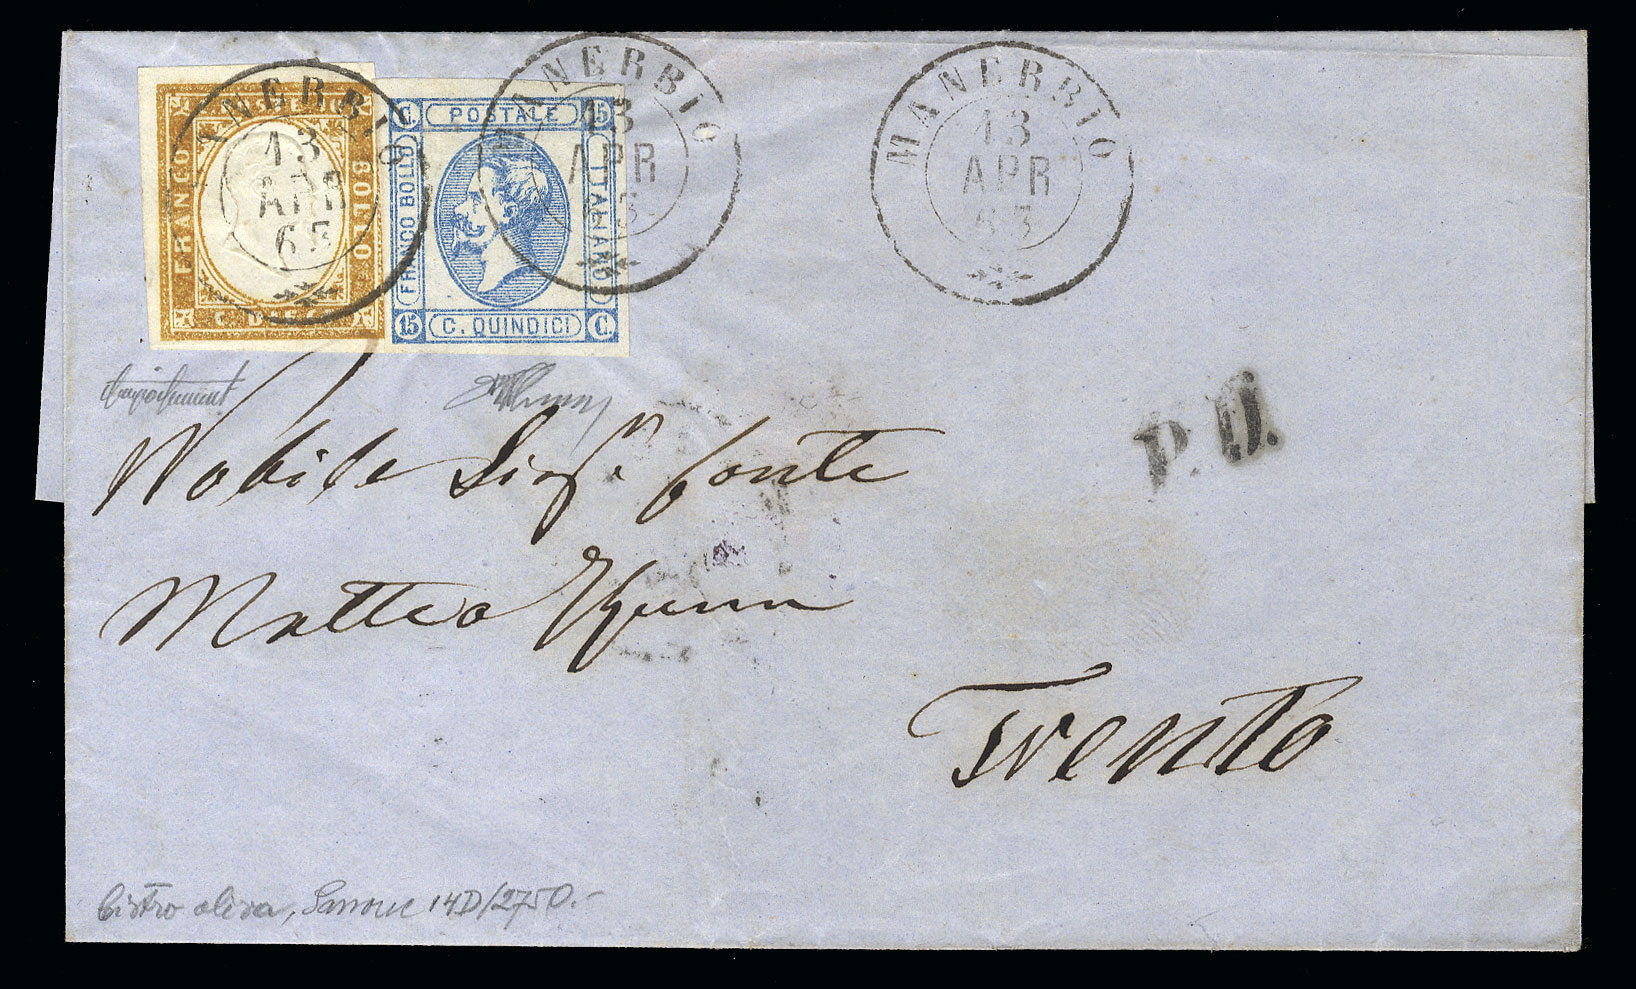 MANERBIO
13
APR
63
MANERBIO
13
APR
63
MANERBIO
13
APR
63
FRANCO
BOLLO
C. DIECI
C. POSTALE 15
FRANCO BOLLO
ITALIANO
15 C. QUINDICI C.
P.D.
Nobile Sigr. Conte
Matteo Thunn
Trento
bistro oliva, Sassone 14D/2750.-